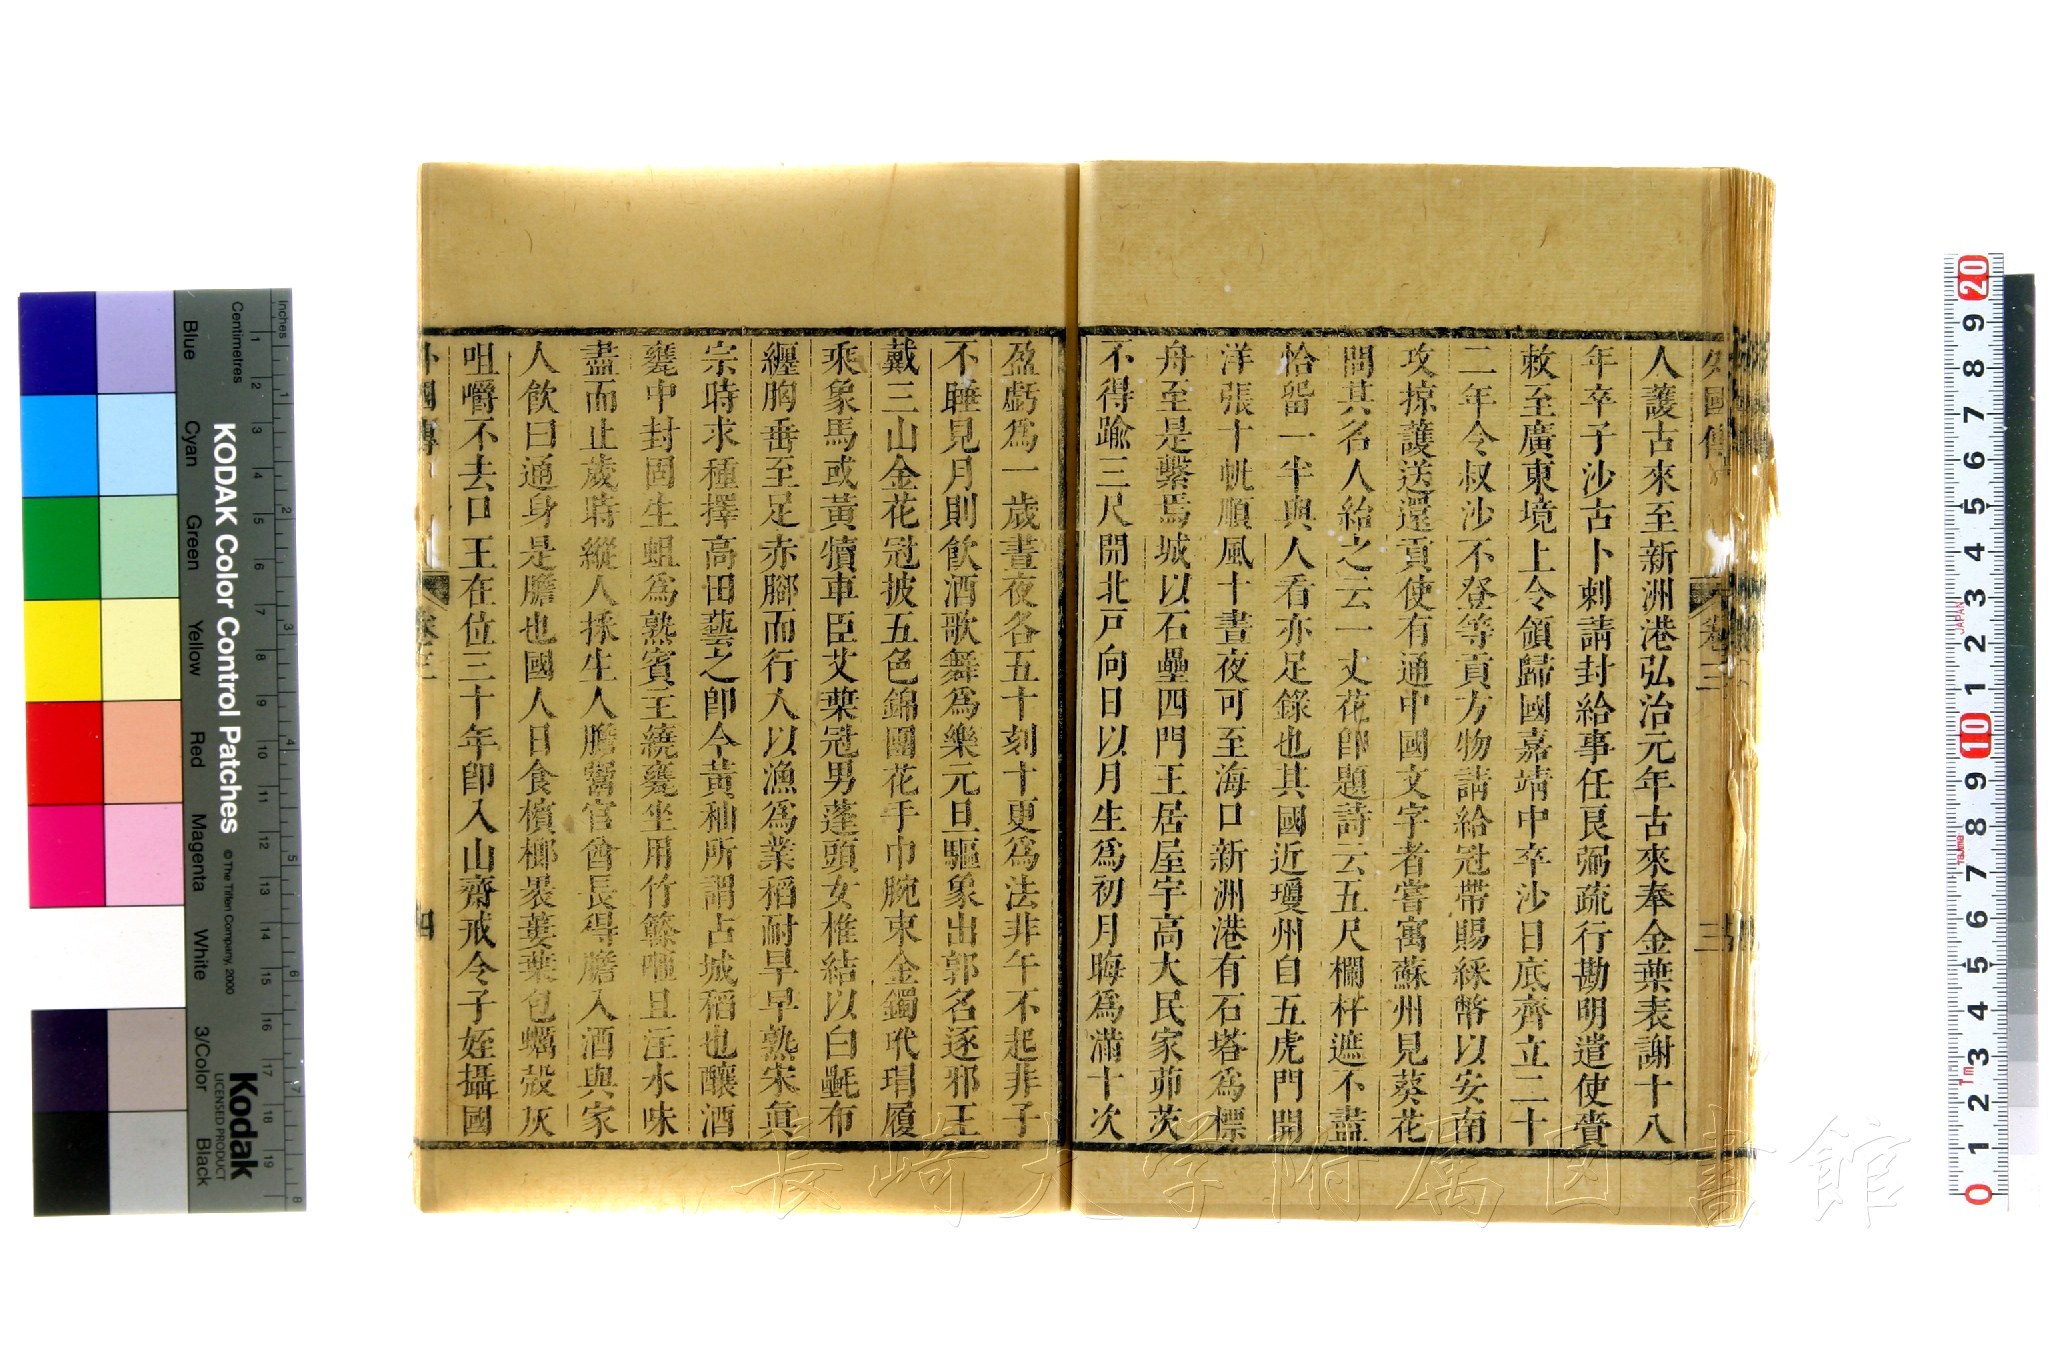 外國傳
卷三
三
人護古來至新洲港弘治元年古來奉金葉表謝十八
年卒子沙古卜刺請封給事任良弼疏行勘明遣使賫
敕至廣東境上令領歸國嘉靖中卒沙日底齊立二十
二年令叔沙不登等貢方物請給冠帶賜綵幣以安南
攻掠護送還貢使有通中國文字者嘗寓蘇州見葵花
問其名人紿之云一丈花卽題詩云五尺欄杆遮不盡
恰畱一半與人看亦足錄也其國近瓊州自五虎門開
洋張十帆順風十晝夜可至海口新洲港有石塔爲標
舟至是繫焉城以石壘四門王居屋宇高大民家茆茨
不得踰三尺開北戸向日以月生爲初月晦爲滿十次
盈虧爲一歲晝夜各五十刻十更爲法非午不起非子
不睡見月則飲酒歌舞爲樂元旦驅象出郭名逐邪王
戴三山金花冠披五色錦團花手巾腕束金鐲玳瑁履
乘象馬或黃犢車臣艾葉冠男蓬頭女椎結以白㲲布
纏胸垂至足赤腳而行人以漁爲業稻耐旱早熟宋眞
宗時求種擇高田藝之卽今黃秈所謂占城稻也釀酒
甕中封固生蛆爲熟賓主繞甕坐用竹簳咂且注水味
盡而止歲時縱人採生人膽鬻官酋長得膽入酒與家
人飲曰通身是膽也國人日食檳榔裹蔞葉包蠣殼灰
咀嚼不去口王在位三十年卽入山齋戒令子姪攝國
外國傳
卷三
四
KODAK Color Control Patches
© The Tiffen Company, 2000
Kodak
LICENSED PRODUCT
Inches
Centimetres
Blue
Cyan
Green
Yellow
Red
Magenta
White
3/Color
Black
JAPAN
Tajima
長崎大学附属図書館